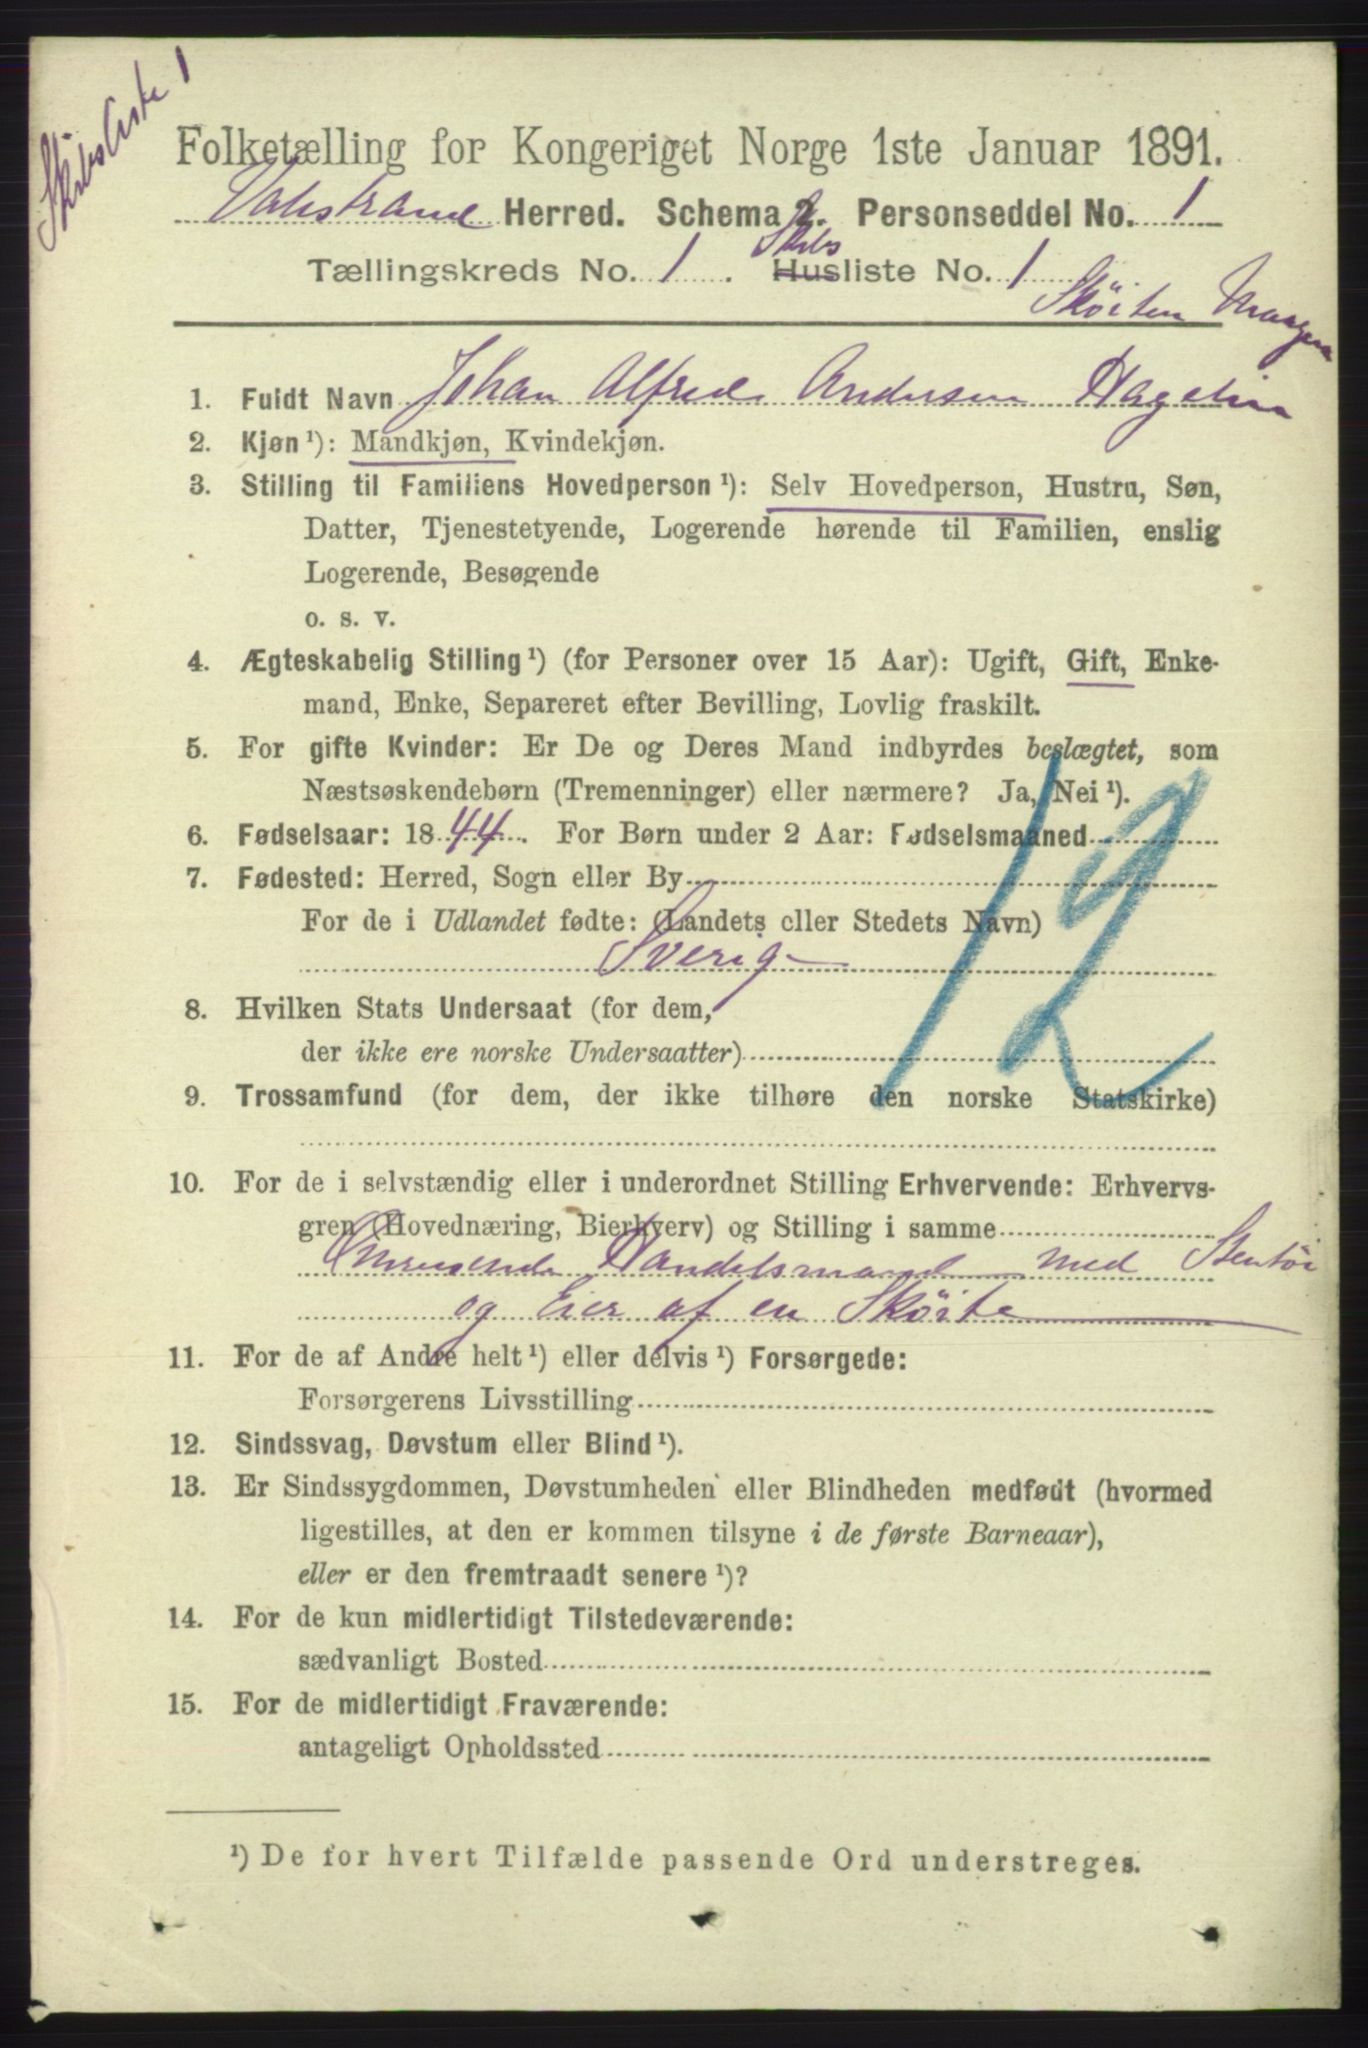 Skibsliste 1
Folketælling for Kongeriget Norge 1ste Januar 1891.
Vatsstrand Herred. Schema 2. Personseddel No. 1
Skibs
Tællingskreds No. 1. Husliste No. 1
Skøiten
1. Fuldt Navn Johan Alfred Andersen Hagelin
2. Kjøn ¹): Mandkjøn, Kvindekjøn.
3. Stilling til Familiens Hovedperson ¹): Selv Hovedperson, Hustru, Søn,
Datter, Tjenestetyende, Logerende hørende til Familien, enslig
Logerende, Besøgende
o. s. v.
4. Ægteskabelig Stilling ¹) (for Personer over 15 Aar): Ugift, Gift, Enke-
mand, Enke, Separeret efter Bevilling, Lovlig fraskilt.
5. For gifte Kvinder: Er De og Deres Mand indbyrdes beslægtet, som
Næstsøskendebørn (Tremenninger) eller nærmere? Ja, Nei ¹).
6. Fødselsaar: 1844. For Børn under 2 Aar: Fødselsmaaned
7. Fødested: Herred, Sogn eller By
For de i Udlandet fødte: (Landets eller Stedets Navn)
Sverig
12
8. Hvilken Stats Undersaat (for dem,
der ikke ere norske Undersaatter)
9. Trossamfund (for dem, der ikke tilhøre den norske Statskirke)
10. For de i selvstændig eller i underordnet Stilling Erhvervende: Erhvervs-
gren (Hovednæring, Bierhverv) og Stilling i samme
Omreisende Handelsmand med Stentøi
og Eier af en Skøite
11. For de af Andre helt ¹) eller delvis ¹) Forsørgede:
Forsørgerens Livsstilling
12. Sindssvag, Døvstum eller Blind ¹).
13. Er Sindssygdommen, Døvstumheden eller Blindheden medfødt (hvormed
ligestilles, at den er kommen tilsyne i de første Barneaar),
eller er den fremtraadt senere ¹)?
14. For de kun midlertidigt Tilstedeværende:
sædvanligt Bosted
15. For de midlertidigt Fraværende:
antageligt Opholdssted
¹) De for hvert Tilfælde passende Ord understreges.